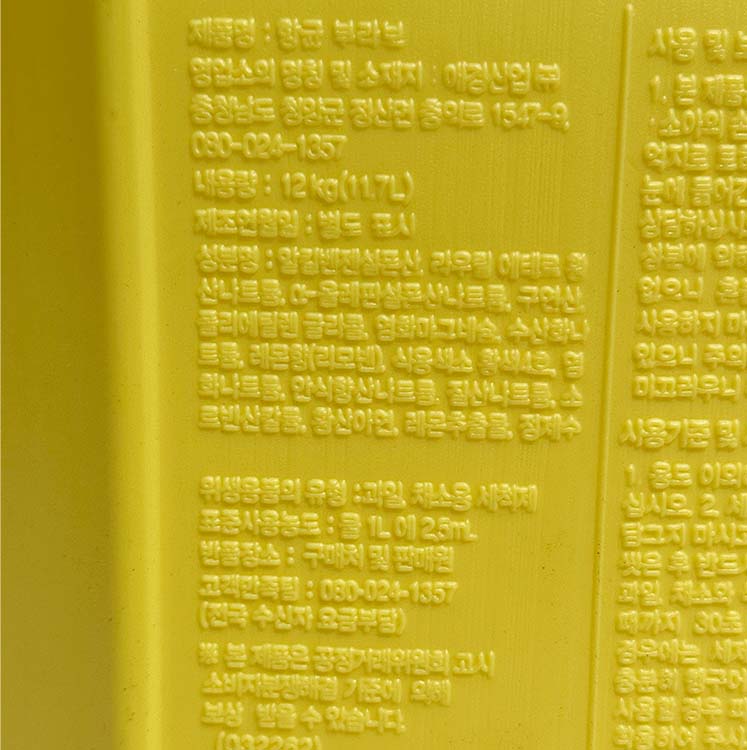 제품명 : 항균 부라보
영업소의 명칭 및 소재지 : 애경산업 ㈜
충청남도 청양군 정산면 충의로 1547-9,
080-024-1357
내용량 : 12 kg(11.7L)
제조연월일 : 별도 표시
성분명 : 알킬벤젠설폰산, 라우릴 에테르 황
산나트륨, α-올레핀설폰산나트륨, 구연산,
폴리에틸렌 글리콜, 염화마그네슘, 수산화나
트륨, 레몬향(리모넨), 식용색소 황색4호, 염
화나트륨, 안식향산나트륨, 질산나트륨, 소
르빈산칼륨, 황산아연, 레몬추출물, 정제수
위생용품의 유형 :과일, 채소용 세척제
표준사용농도 : 물 1L 에 2.5mL
반품장소 : 구매처 및 판매원
고객만족팀 : 080-024-1357
(전국 수신자 요금부담)
※ 본 제품은 공정거래위원회 고시
소비자분쟁해결 기준에 의해
보상 받을 수 있습니다.
(032262)
사용 및 보
1. 본 제품
: 소아의 손
억지로 토
눈에 들어간
상담하십시
성분에 의하
없으니
사용하지 마
있으니 주의
미끄러우니
사용기준 및
1. 용도 이외
십시오 2. 세
헹그지 마시고
씻은 후 반드
과일, 채소의
때까지 30초
경우에는 세제
충분히 헹구어
사용할 경우